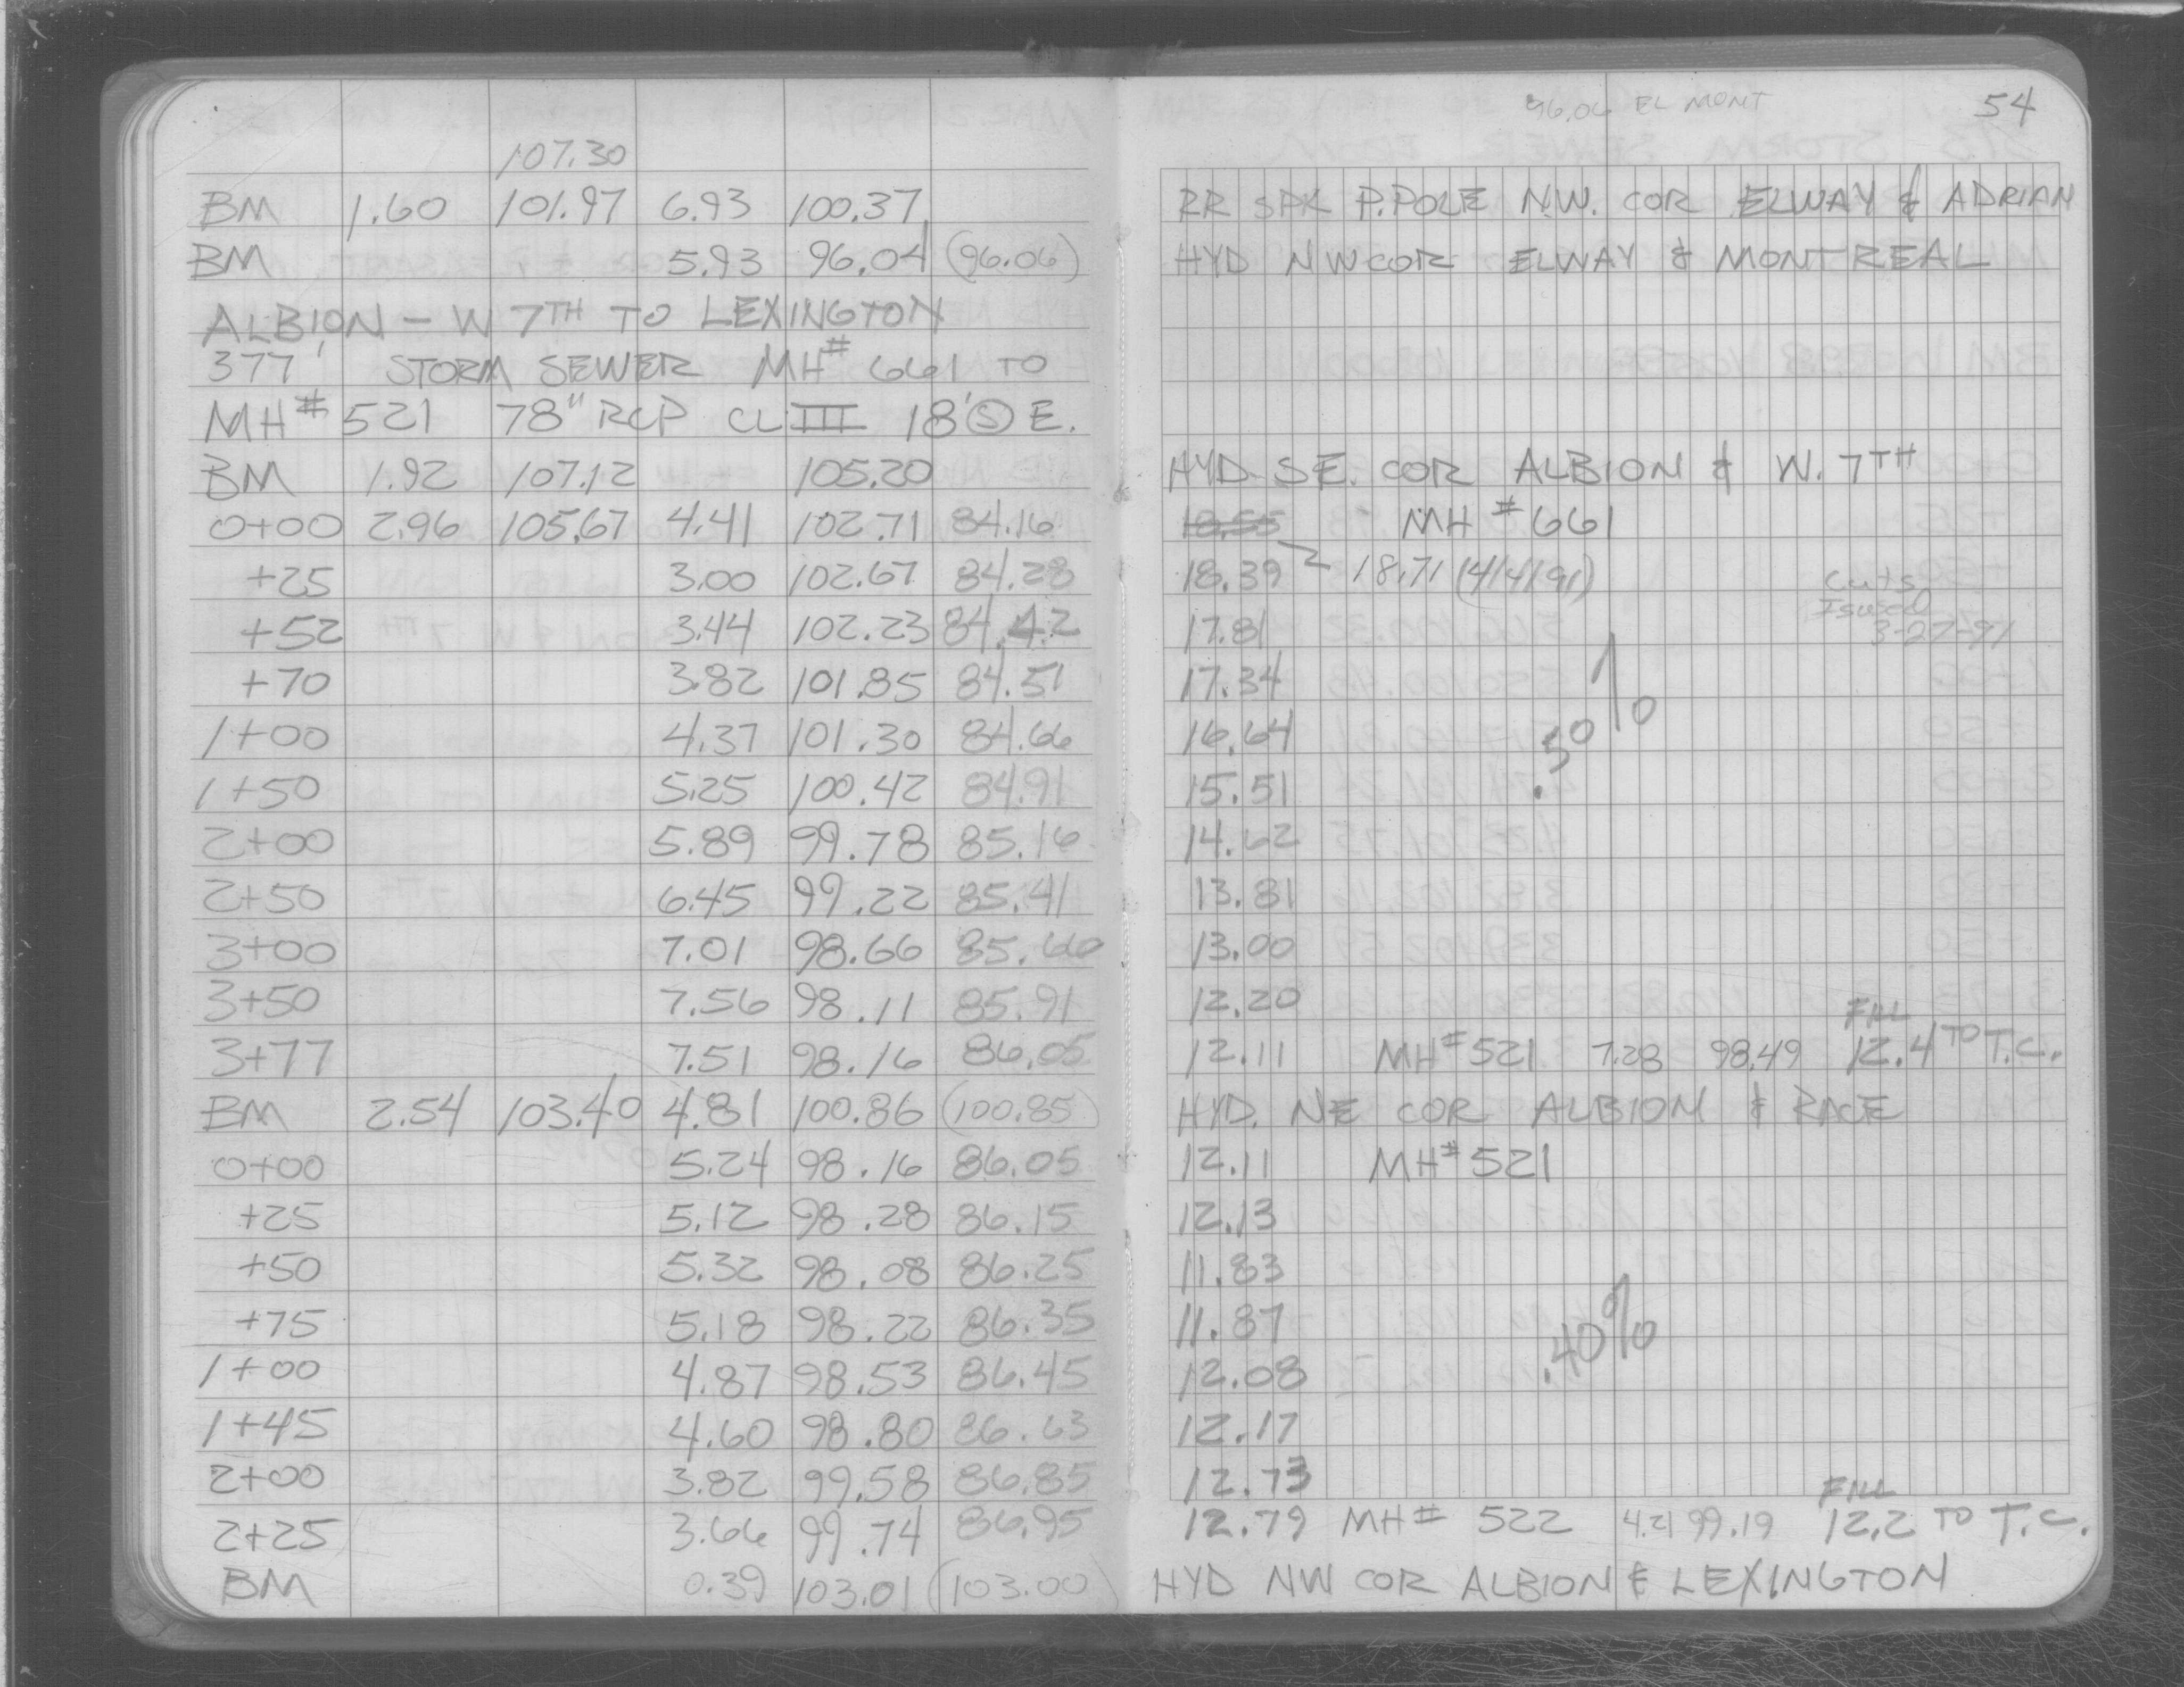 96.06 EL MONT 54
107.30
BM 1.60 101.97 6.93 100.37 RR SPK P.POLE N.W. COR ELWAY & ADRIAN
BM 5.93 96.04 (96.06) HYD NW COR ELWAY & MONTREAL
ALBION - W 7TH TO LEXINGTON
377' STORM SEWER MH# 661 TO
MH# 521 78" RCP CL III 18' Ⓢ E.
BM 1.92 107.12 105.20 HYD SE. COR ALBION & W. 7TH
0+00 2.96 105.67 4.41 102.71 84.16 18.55 MH #661
+25 3.00 102.67 84.28 18.39 18.71 (4/4/91) Cuts
Isued
+52 3.44 102.23 84.42 17.81 3-27-91
+70 3.82 101.85 84.51 17.34
1+00 4.37 101.30 84.66 16.64 .50%
1+50 5.25 100.42 84.91 15.51
2+00 5.89 99.78 85.16 14.62
2+50 6.45 99.22 85.41 13.81
3+00 7.01 98.66 85.66 13.00
3+50 7.56 98.11 85.91 12.20 FILL
3+77 7.51 98.16 86.05 12.11 MH# 521 7.28 98.49 12.4 TO T.C.
BM 2.54 103.40 4.81 100.86 (100.85) HYD. NE COR ALBION & RACE
0+00 5.24 98.16 86.05 12.11 MH# 521
+25 5.12 98.28 86.15 12.13
+50 5.32 98.08 86.25 11.83
+75 5.18 98.22 86.35 11.87 .40%
1+00 4.87 98.53 86.45 12.08
1+45 4.60 98.80 86.63 12.17
2+00 3.82 99.58 86.85 12.73 FILL
2+25 3.66 99.74 86.95 12.79 MH# 522 4.21 99.19 12.2 TO T.C.
BM 0.39 103.01 (103.00) HYD NW COR ALBION & LEXINGTON